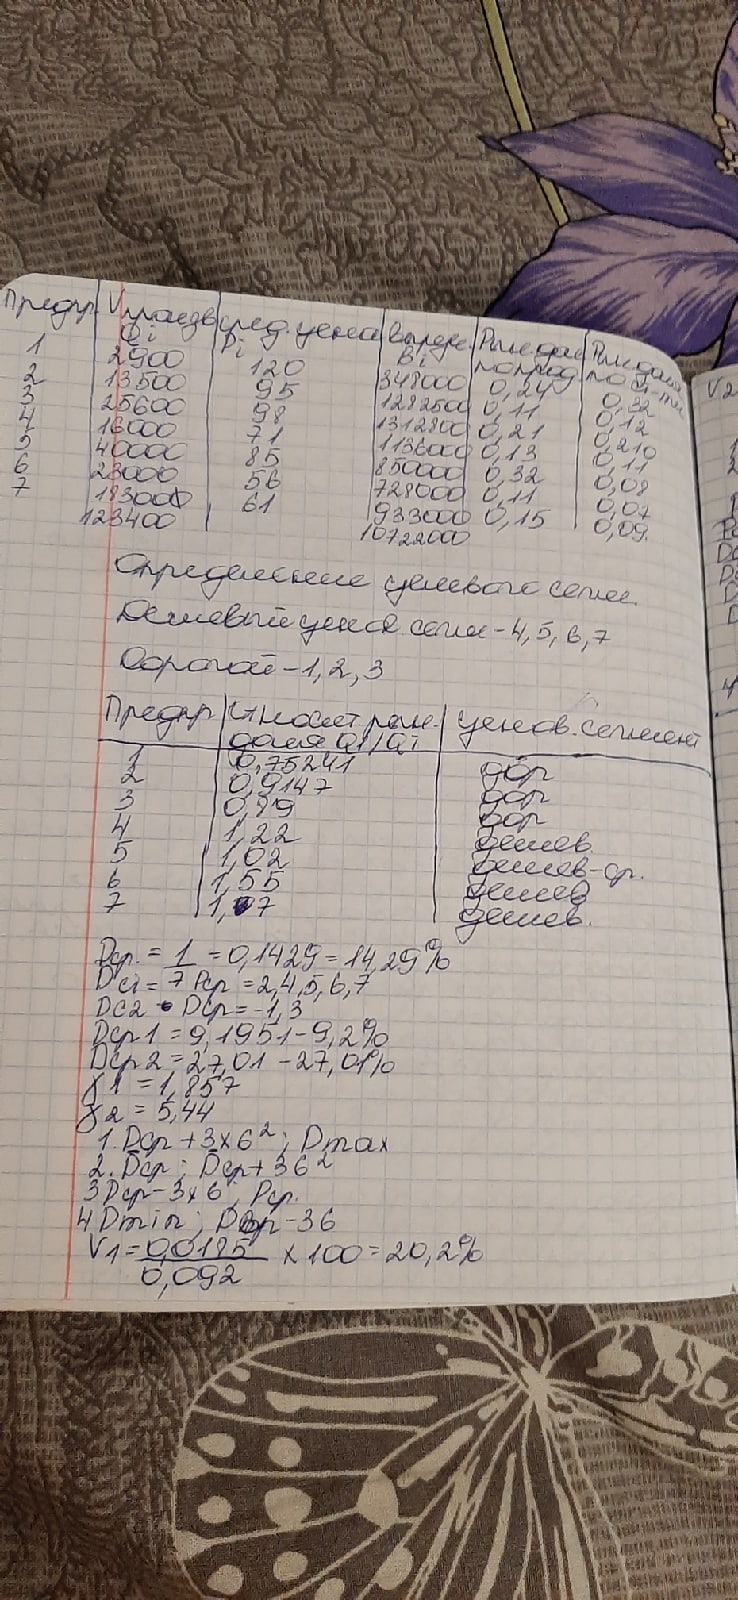 Предпр Vпроизв сред. цена Выруч Рын дол Рын доля
Qi Pi Bi по прод по ст-ти
1 2900 120 348000 0,24 0,32
2 13500 95 1282500 0,11 0,12
3 25600 98 1312800 0,21 0,210
4 16000 71 1136000 0,13 0,11
5 40000 85 850000 0,32 0,08
6 23000 56 728000 0,11 0,07
7 183000 61 933000 0,15 0,09
123400 10722000
Определение целевого сегм.
Дешевый ценов. сегм - 4, 5, 6, 7
Дорогой - 1, 2, 3
Предпр Относит рын. ценов. сегмент
доля qi/Qi
1 0,75241 дор
2 0,9147 дор
3 0,89 дор
4 1,22 дешев.
5 1,02 дешев-ср.
6 1,55 дешев
7 1,07 дешев.
Dср. = 1/7 = 0,1429 = 14,29%
Dс1 = Pср = 2,4,5,6,7
Dс2 Dср = -1,3
Dср1 = 9,1951 - 9,2%
Dср2 = 27,01 - 27,01%
γ1 = 1,857
γ2 = 5,44
1. Dср + 3×б²; Dmax
2. Dср; Dср + 3б²
3 Dср - 3×б; Pср.
4 Dmin; Dср - 3б
V1 = 0,0185 / 0,092 × 100 = 20,2%